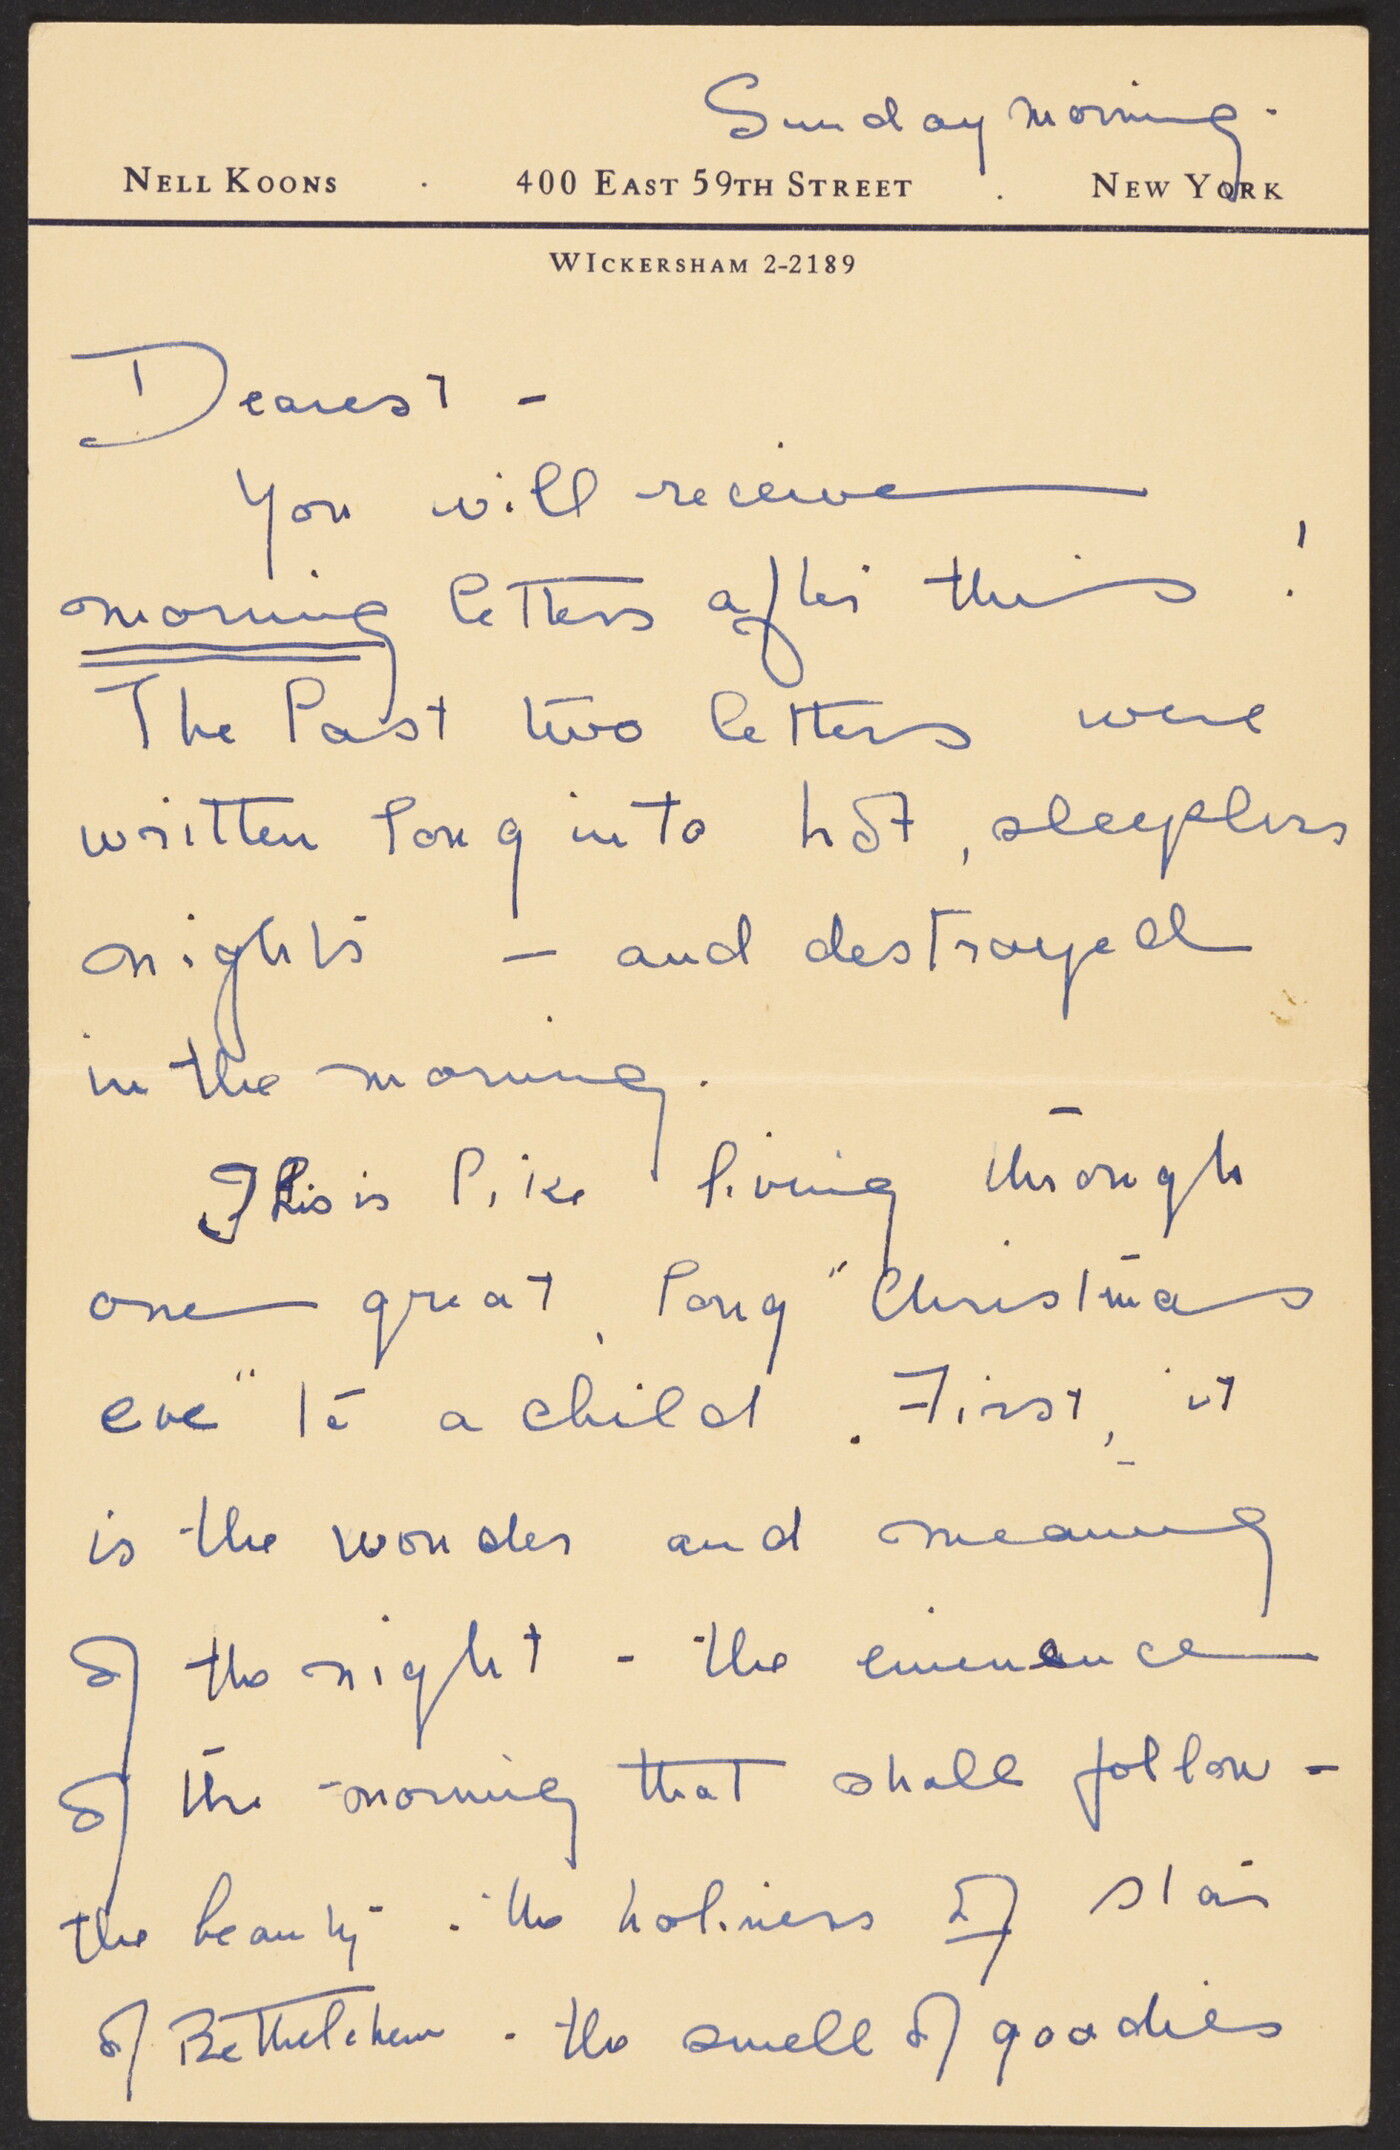 Sunday morning.
NELL KOONS · 400 EAST 59TH STREET · NEW YORK
WICKERSHAM 2-2189
Dearest -
You will receive
morning letters after this!
The last two letters were
written long into hot, sleepless
nights - and destroyed
in the morning.
This is like living through
one great, long "Christmas
eve" to a child. First, it
is the wonder and meaning
of the night - the eminence
of the morning that shall follow -
the beauty - the holiness of star
of Bethelehem - the smell of goodies